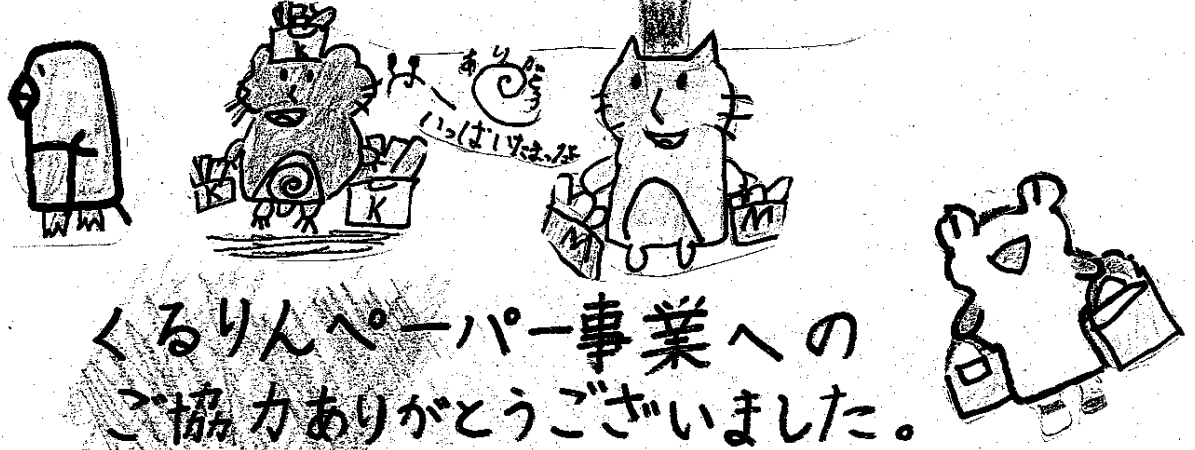 K
K
K
ありが
いっぱいだまったよ
M
M
くるりんペーパー事業への
ご協力ありがとうございました。